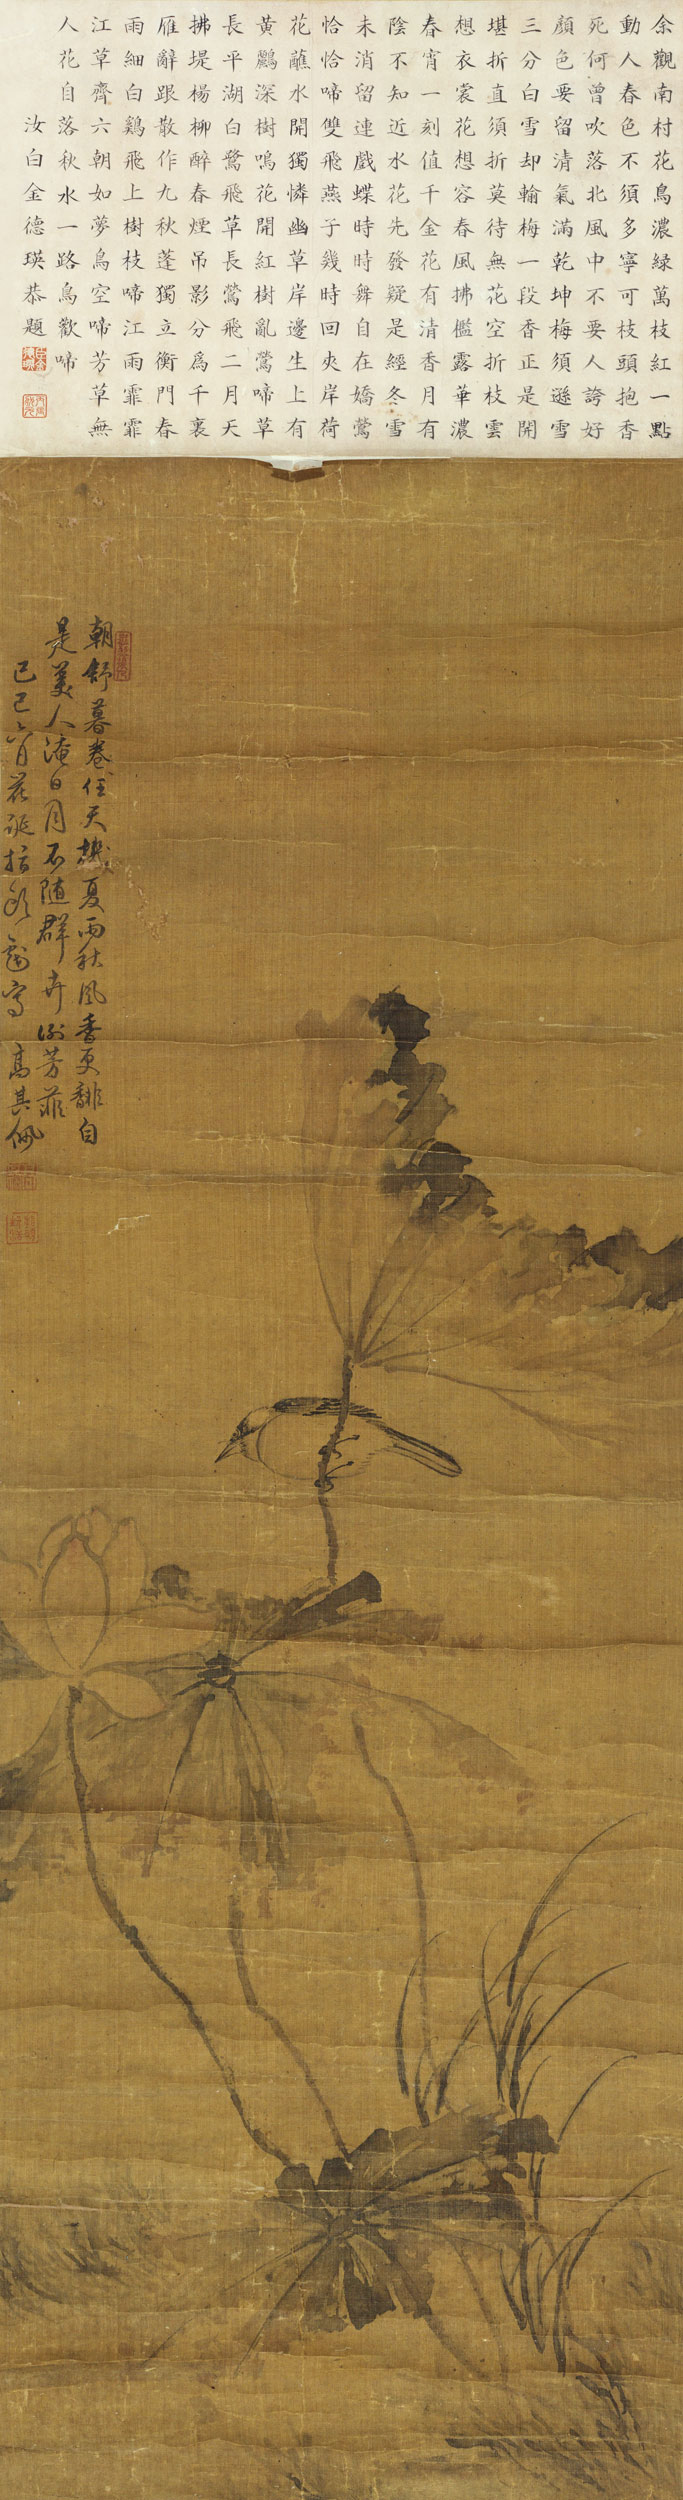 余觀南村花鳥濃綠萬枝紅一點
動人春色不須多寧可枝頭抱香
死何曾吹落北風中不要人誇好
顏色要留清氣滿乾坤梅須遜雪
三分白雪却輸梅一段香正是開
堪折直須折莫待無花空折枝雲
想衣裳花想容春風拂檻露華濃
春宵一刻值千金花有清香月有
陰不知近水花先發疑是經冬雪
未消留連戲蝶時時舞自在嬌鶯
恰恰啼雙飛燕子幾時回夾岸荷
花蘸水開獨憐幽草岸邊生上有
黃鸝深樹鳴花開紅樹亂鶯啼草
長平湖白鷺飛草長鶯飛二月天
拂堤楊柳醉春煙吊影分為千裏
雁辭跟散作九秋蓬獨立衡門春
雨細白鷄飛上樹枝啼江雨霏霏
江草齊六朝如夢鳥空啼芳草無
人花自落秋水一路鳥歡啼
汝白金德瑛恭題
朝舒暮卷任天機夏雨秋風香更馡自
是美人淹日月不随群卉鬥芳菲
己巳六月花誕指頭戲寫 高其佩